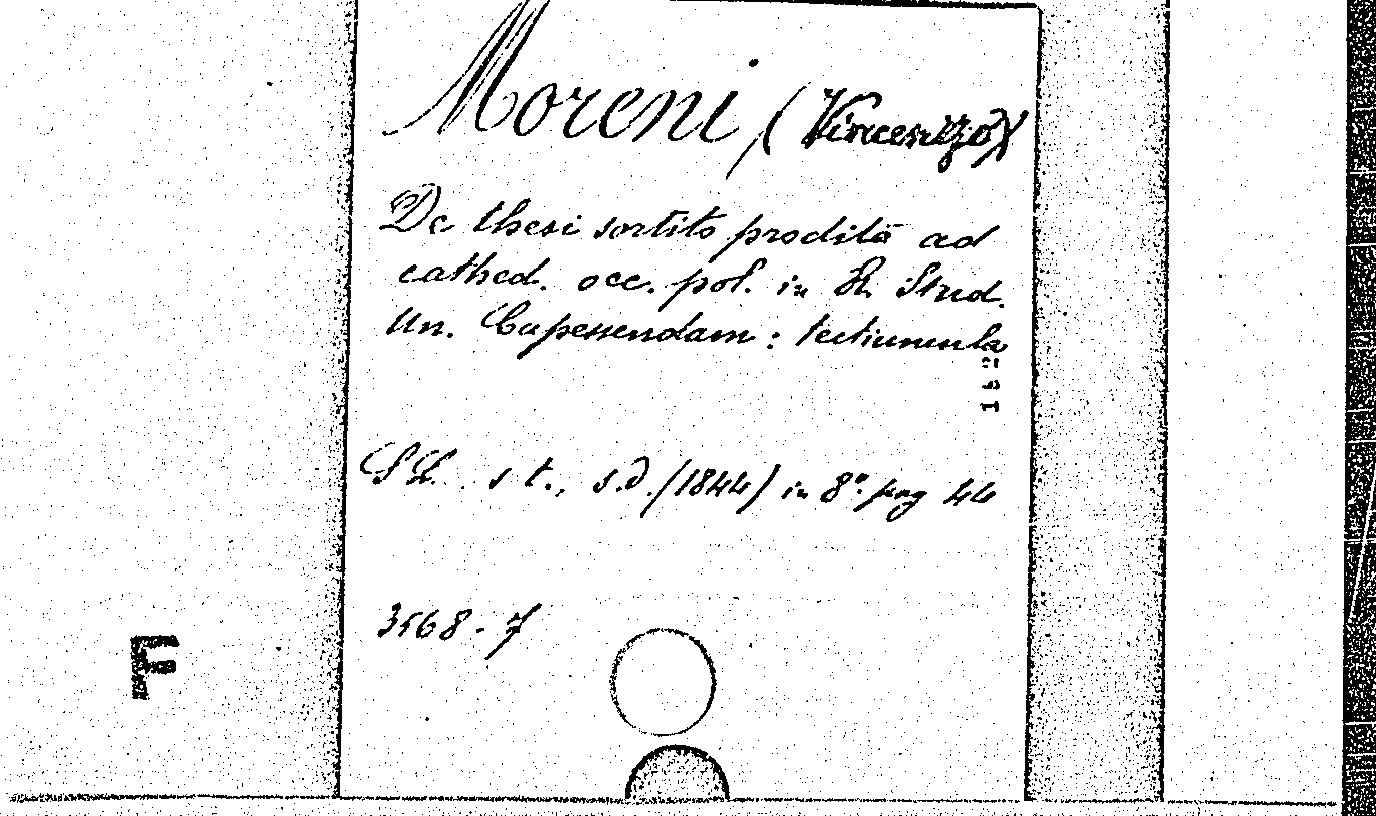 Moreni (Vincenzo)
De thesi sortito prodita ad
cathed. occ. pol. in R. Stud.
Un. Capessendam : lectiuncula
S.L. s. t., s.d. (1844) in 8°. pag 44
3568 - 7
F